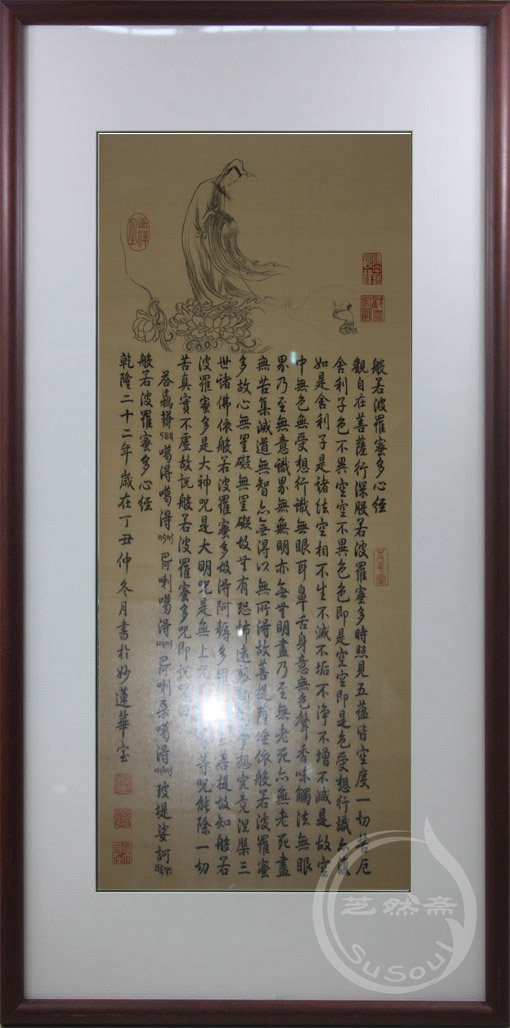 般若波羅蜜多心經
觀自在菩薩行深般若波羅蜜多時照見五蘊皆空度一切苦厄
舍利子色不異空空不異色色即是空空即是色受想行識亦復
如是舍利子是諸法空相不生不滅不垢不淨不增不減是故空
中無色無受想行識無眼耳鼻舌身意無色聲香味觸法無眼
界乃至無意識界無無明亦無無明盡乃至無老死亦無老死盡
無苦集滅道無智亦無得以無所得故菩提薩埵依般若波羅蜜
多故心無罣礙無罣礙故無有恐怖遠離 夢想究竟涅槃三
世諸佛依般若波羅蜜多故得阿耨多羅 菩提故知般若
波羅蜜多是大神咒是大明咒是無上咒 等咒能除一切
苦真實不虛故說般若波羅蜜多咒即說咒曰
噶得噶得 噶得 噶得 菠提娑訶
般若波羅蜜多心經
乾隆二十二年歲在丁丑仲冬月書於妙蓮華室
芝然斋
SuSoul